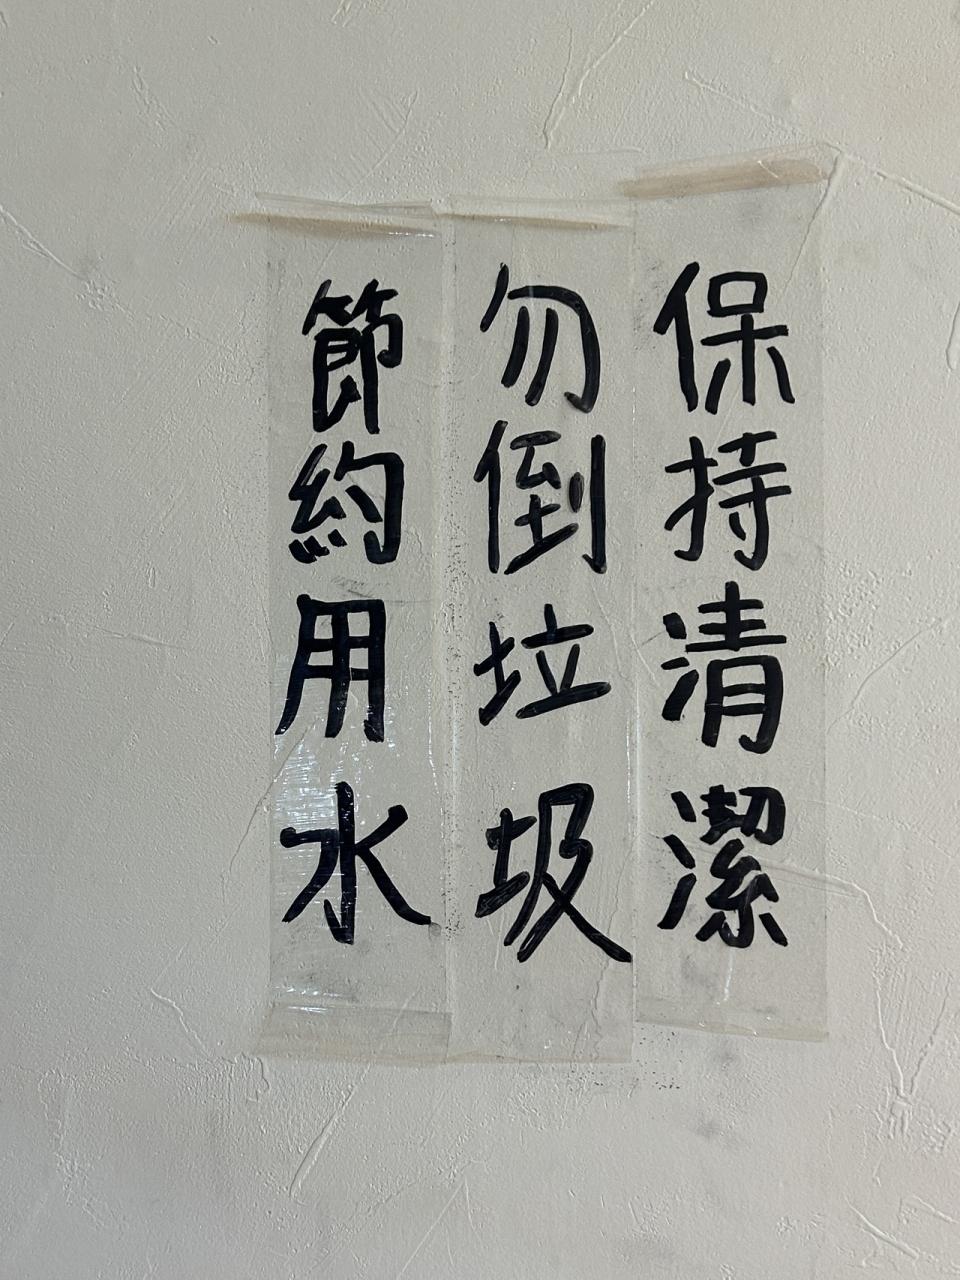 保持清潔
勿倒垃圾
節約用水